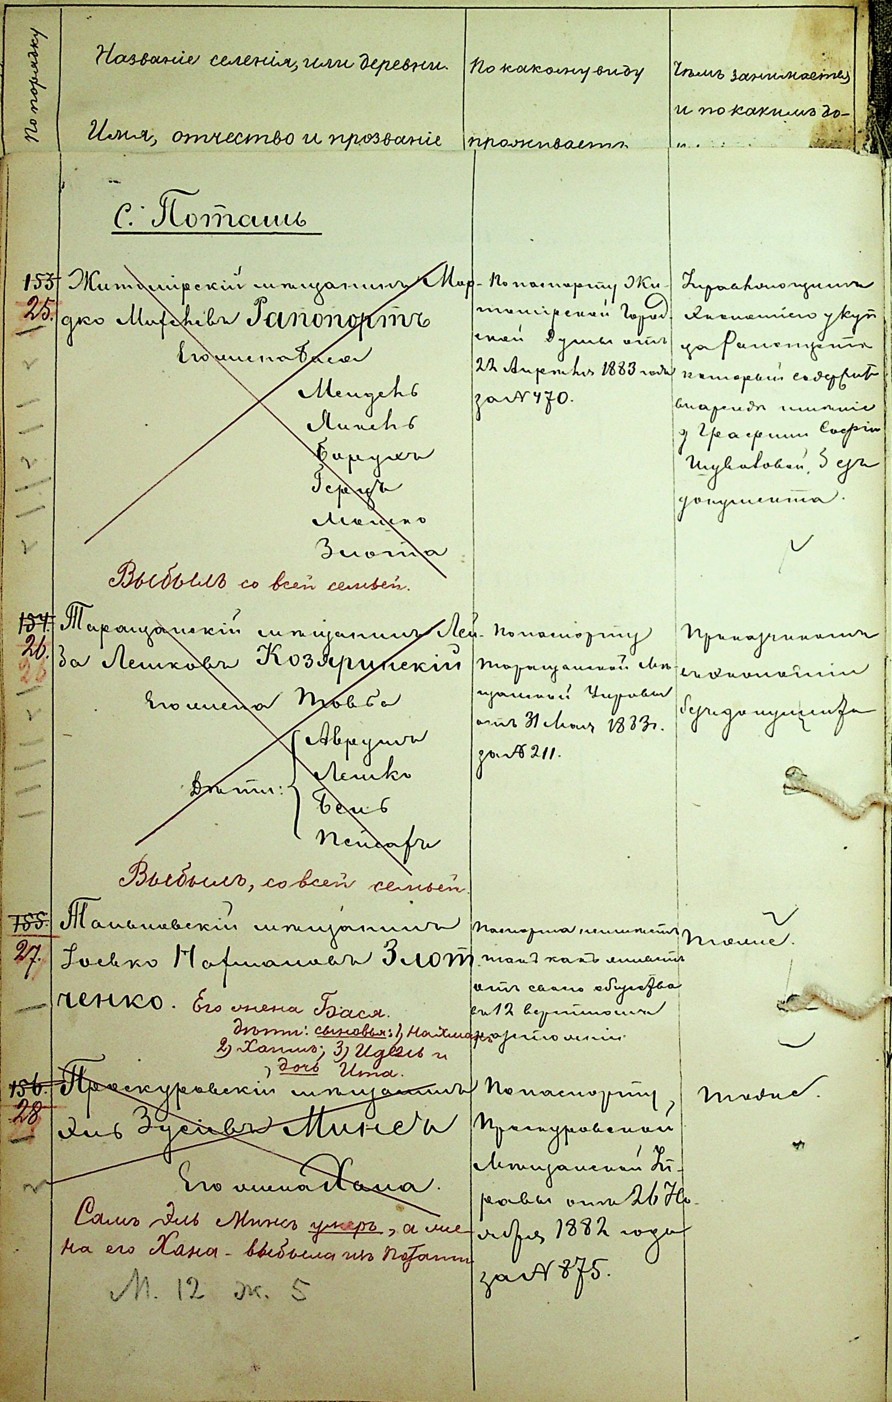 По порядку
Названіе селенія, или деревни.
Имя, отчество и прозваніе
По какому виду
проживаетъ
Чѣмъ занимается
и по какимъ до-
С. Поташъ
153
25.
Житомірскій мѣщанинъ Мор-
дко Рапопортъ
Его жена Бася
Мендель
Янкель
Борухъ
Гершъ
Мошко
Злота
Выбылъ со всей семьей.
По паспорту Жи-
томірской Город-
ской Думы отъ
22 Апрѣля 1883 года
за № 470.
Управляющимъ
у куп
ца
который содержитъ
въ арендѣ имѣніе
у Графини Софіи
Шуваловой, безъ
документа.
154.
26.
Таращанскій мѣщанинъ Лей-
ба Лейзеровъ Козяринскій
Его жена Товба
Дѣти:
Аврумъ
Лешко
Бень
Пейсахъ
Выбылъ, со всей семьей.
По паспорту
Таращанской Мѣ-
щанской Управы
отъ 31 Мая 1883 г.
за № 211.
Приказчикомъ
въ экономіи
безъ документа
155.
27.
Тальновскій мѣщанинъ
Іосько Нахмановъ Злот-
ченко. Его жена Бася.
дѣти: сыновья: 1, Нахманъ,
2, Хаимъ; 3, Идель и
дочь Ита.
Паспорта неимѣетъ
такъ какъ живетъ
отъ своего общества
въ 12 верстномъ
разстояніи.
Тоже.
156.
28
Проскуровскій мѣщанинъ
Эль Зусіевъ Минсъ
Его жена Хана.
Самъ Эль Минсъ умеръ, а же-
на его Хана - выбыла изъ Поташа
М. 12 ж. 5
По паспорту,
Проскуровской
Мѣщанской Уп-
равы отъ 26 Но-
ября 1882 года
за № 875.
Тоже.